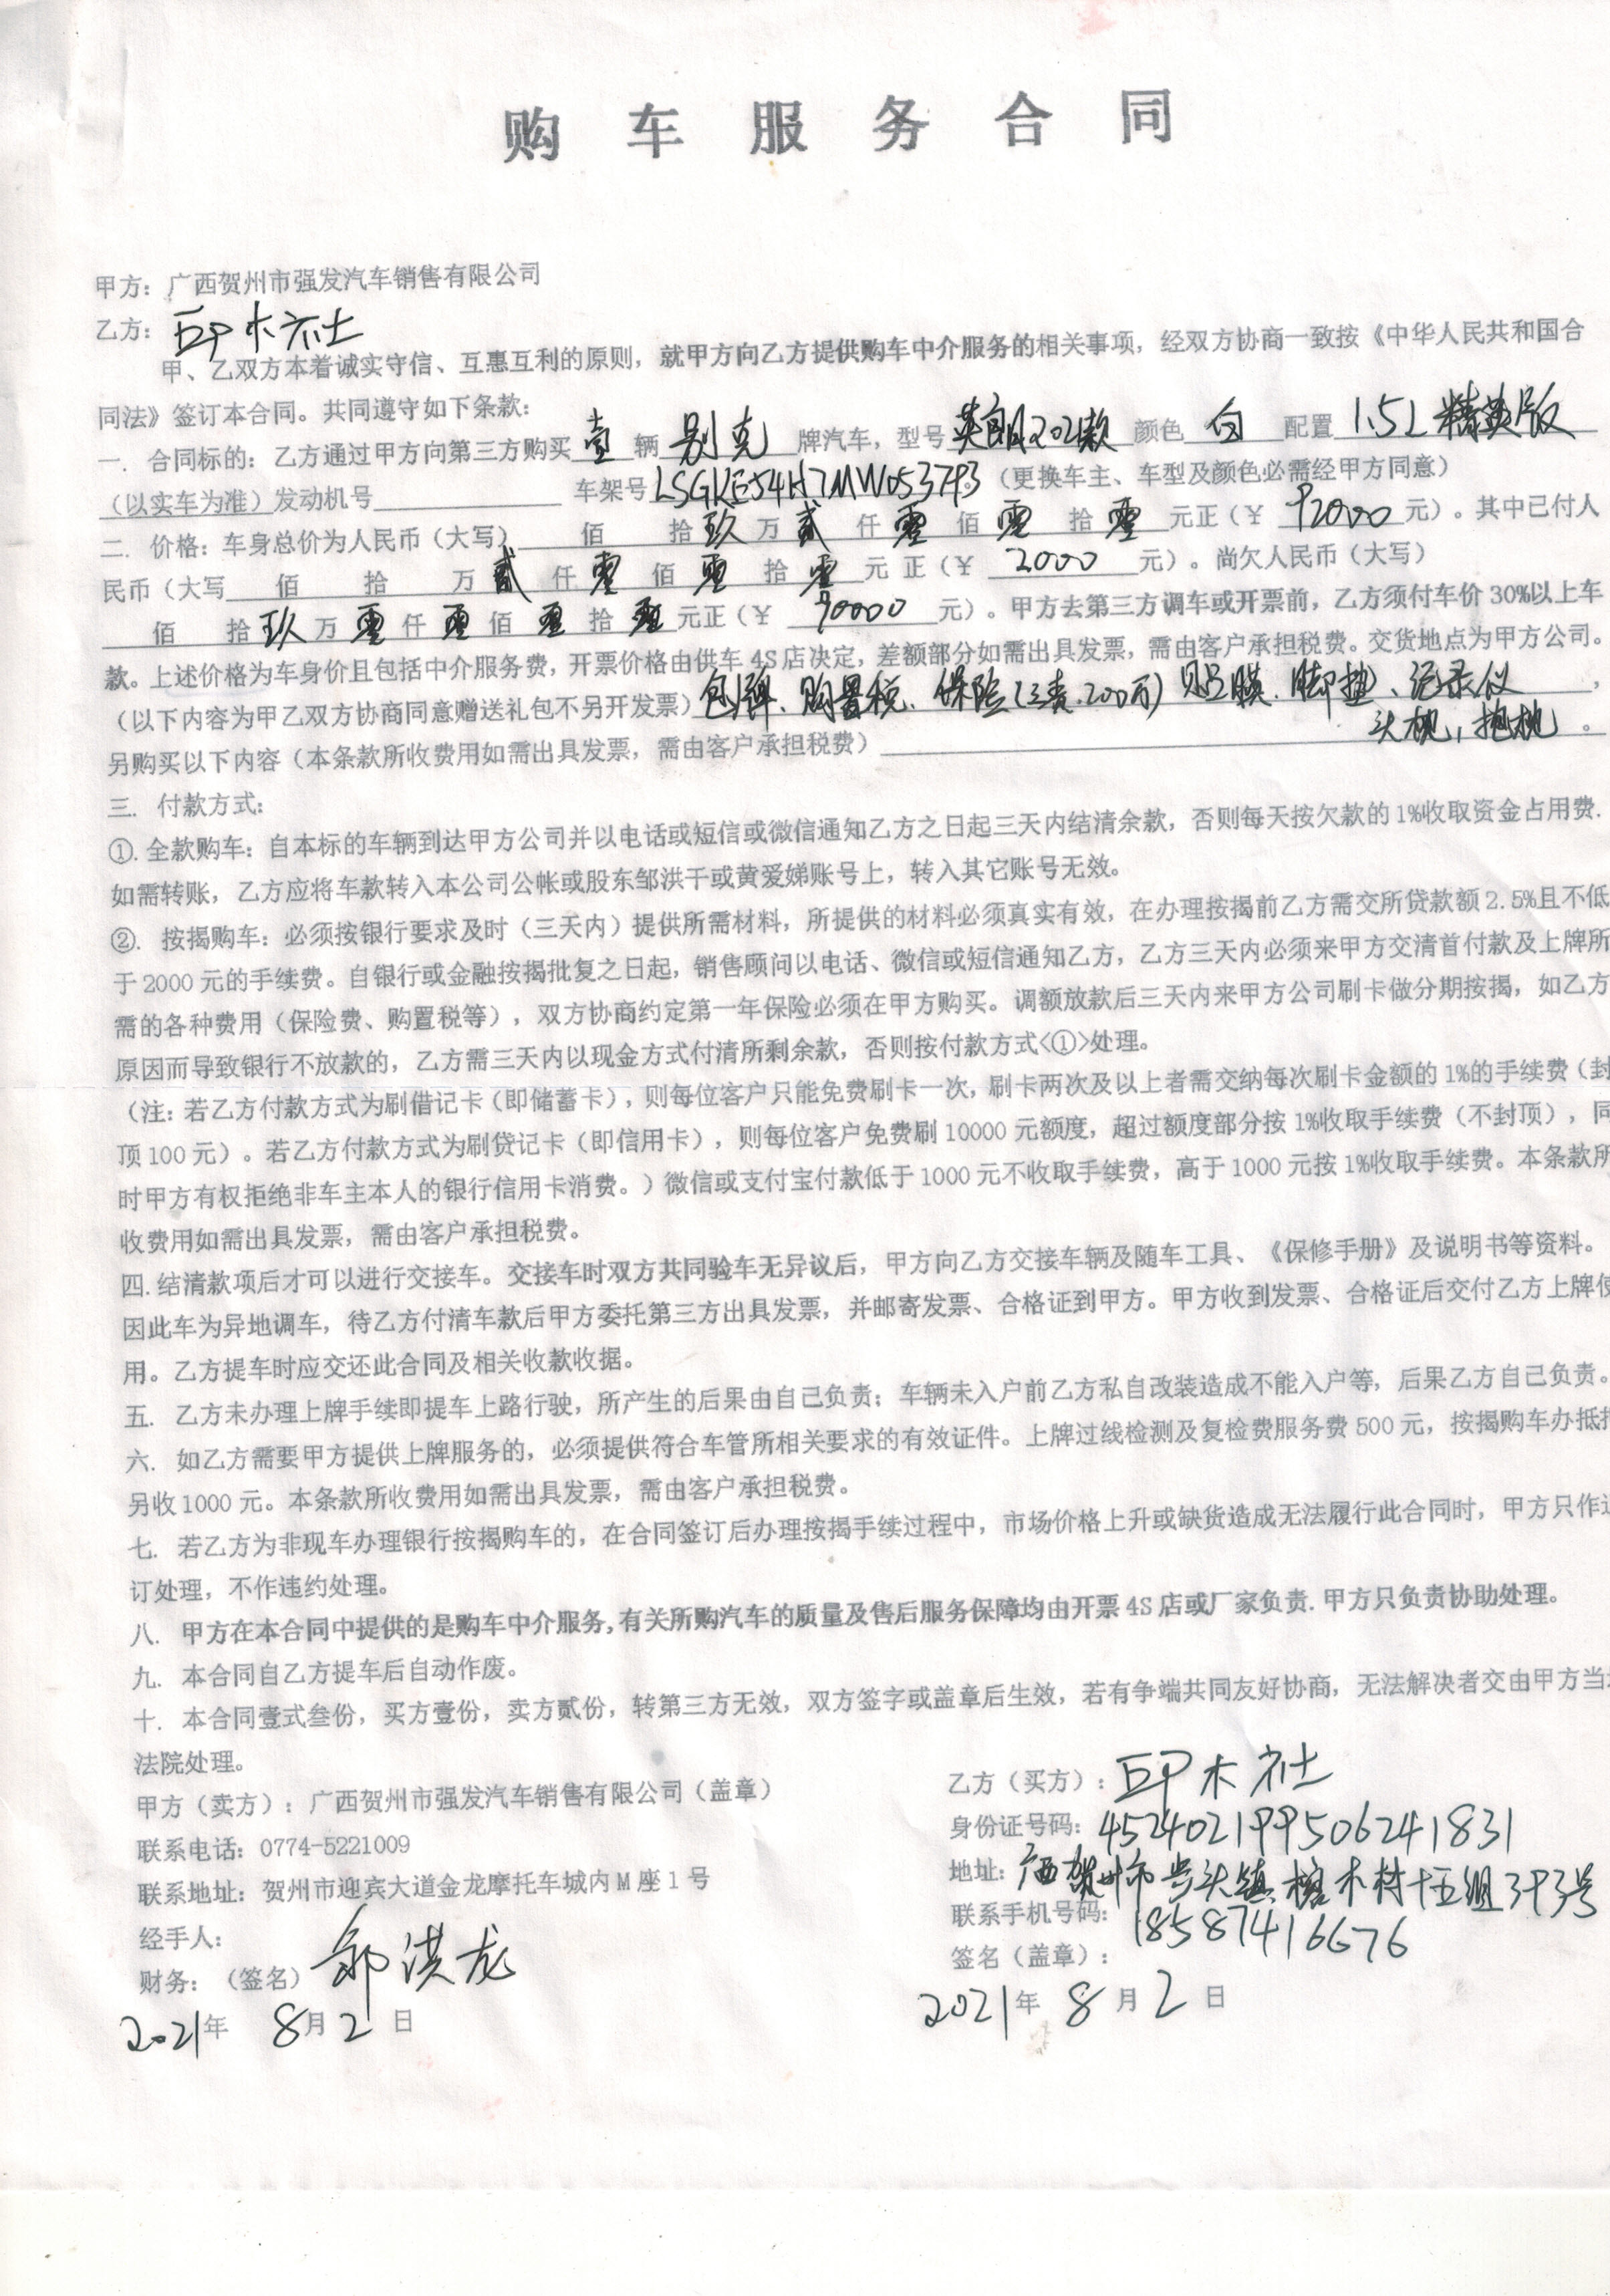 购车服务合同
甲方：广西贺州市强发汽车销售有限公司
乙方：邱木社
甲、乙双方本着诚实守信、互惠互利的原则，就甲方向乙方提供购车中介服务的相关事项，经双方协商一致按《中华人民共和国合
同法》签订本合同。共同遵守如下条款：
一. 合同标的：乙方通过甲方向第三方购买 壹 辆 别克 牌汽车，型号 英朗2021款 颜色 白 配置 1.5L 精英版
（以实车为准）发动机号 车架号 LSGKE54H7MW053793（更换车主、车型及颜色必需经甲方同意）
二. 价格：车身总价为人民币（大写） 佰 拾 玖 万 贰 仟 零 佰 零 拾 零 元正（¥ 92000 元）。其中已付人
民币（大写 佰 拾 万 贰 仟 零 佰 零 拾 零 元 正（¥ 2000 元）。尚欠人民币（大写）
佰 拾 玖 万 零 仟 零 佰 零 拾 零 元正（¥ 90000 元）。甲方去第三方调车或开票前，乙方须付车价 30%以上车
款。上述价格为车身价且包括中介服务费，开票价格由供车 4S 店决定，差额部分如需出具发票，需由客户承担税费。交货地点为甲方公司。
（以下内容为甲乙双方协商同意赠送礼包不另开发票）包牌、购置税、保险（三责.200万）贴膜、脚垫、记录仪，
头枕，抱枕。
另购买以下内容（本条款所收费用如需出具发票，需由客户承担税费）
三. 付款方式：
①. 全款购车：自本标的车辆到达甲方公司并以电话或短信或微信通知乙方之日起三天内结清余款，否则每天按欠款的 1%收取资金占用费.
如需转账，乙方应将车款转入本公司公帐或股东邹洪干或黄爱娣账号上，转入其它账号无效。
②. 按揭购车：必须按银行要求及时（三天内）提供所需材料，所提供的材料必须真实有效，在办理按揭前乙方需交所贷款额 2.5%且不低
于 2000 元的手续费。自银行或金融按揭批复之日起，销售顾问以电话、微信或短信通知乙方，乙方三天内必须来甲方交清首付款及上牌所
需的各种费用（保险费、购置税等），双方协商约定第一年保险必须在甲方购买。调额放款后三天内来甲方公司刷卡做分期按揭，如乙方
原因而导致银行不放款的，乙方需三天内以现金方式付清所剩余款，否则按付款方式<①>处理。
（注：若乙方付款方式为刷借记卡（即储蓄卡），则每位客户只能免费刷卡一次，刷卡两次及以上者需交纳每次刷卡金额的 1%的手续费（封
顶 100 元）。若乙方付款方式为刷贷记卡（即信用卡），则每位客户免费刷 10000 元额度，超过额度部分按 1%收取手续费（不封顶），同
时甲方有权拒绝非车主本人的银行信用卡消费。）微信或支付宝付款低于 1000 元不收取手续费，高于 1000 元按 1%收取手续费。本条款所
收费用如需出具发票，需由客户承担税费。
四. 结清款项后才可以进行交接车。交接车时双方共同验车无异议后，甲方向乙方交接车辆及随车工具、《保修手册》及说明书等资料。
因此车为异地调车，待乙方付清车款后甲方委托第三方出具发票，并邮寄发票、合格证到甲方。甲方收到发票、合格证后交付乙方上牌使
用。乙方提车时应交还此合同及相关收款收据。
五. 乙方未办理上牌手续即提车上路行驶，所产生的后果由自己负责；车辆未入户前乙方私自改装造成不能入户等，后果乙方自己负责。
六. 如乙方需要甲方提供上牌服务的，必须提供符合车管所相关要求的有效证件。上牌过线检测及复检费服务费 500 元，按揭购车办抵押
另收 1000 元。本条款所收费用如需出具发票，需由客户承担税费。
七. 若乙方为非现车办理银行按揭购车的，在合同签订后办理按揭手续过程中，市场价格上升或缺货造成无法履行此合同时，甲方只作
订处理，不作违约处理。
八. 甲方在本合同中提供的是购车中介服务,有关所购汽车的质量及售后服务保障均由开票 4S 店或厂家负责. 甲方只负责协助处理。
九. 本合同自乙方提车后自动作废。
十. 本合同壹式叁份，买方壹份，卖方贰份，转第三方无效，双方签字或盖章后生效，若有争端共同友好协商，无法解决者交由甲方当
法院处理。
甲方（卖方）：广西贺州市强发汽车销售有限公司（盖章）
联系电话：0774-5221009
联系地址：贺州市迎宾大道金龙摩托车城内 M 座 1 号
经手人：
财务：（签名）邹洪龙
2021年 8月2日
乙方（买方）：邱木社
身份证号码：452402199506241831
地址：广西贺州市 头镇 木村十五组393号
联系手机号码：18587416676
签名（盖章）：
2021年 8月2日